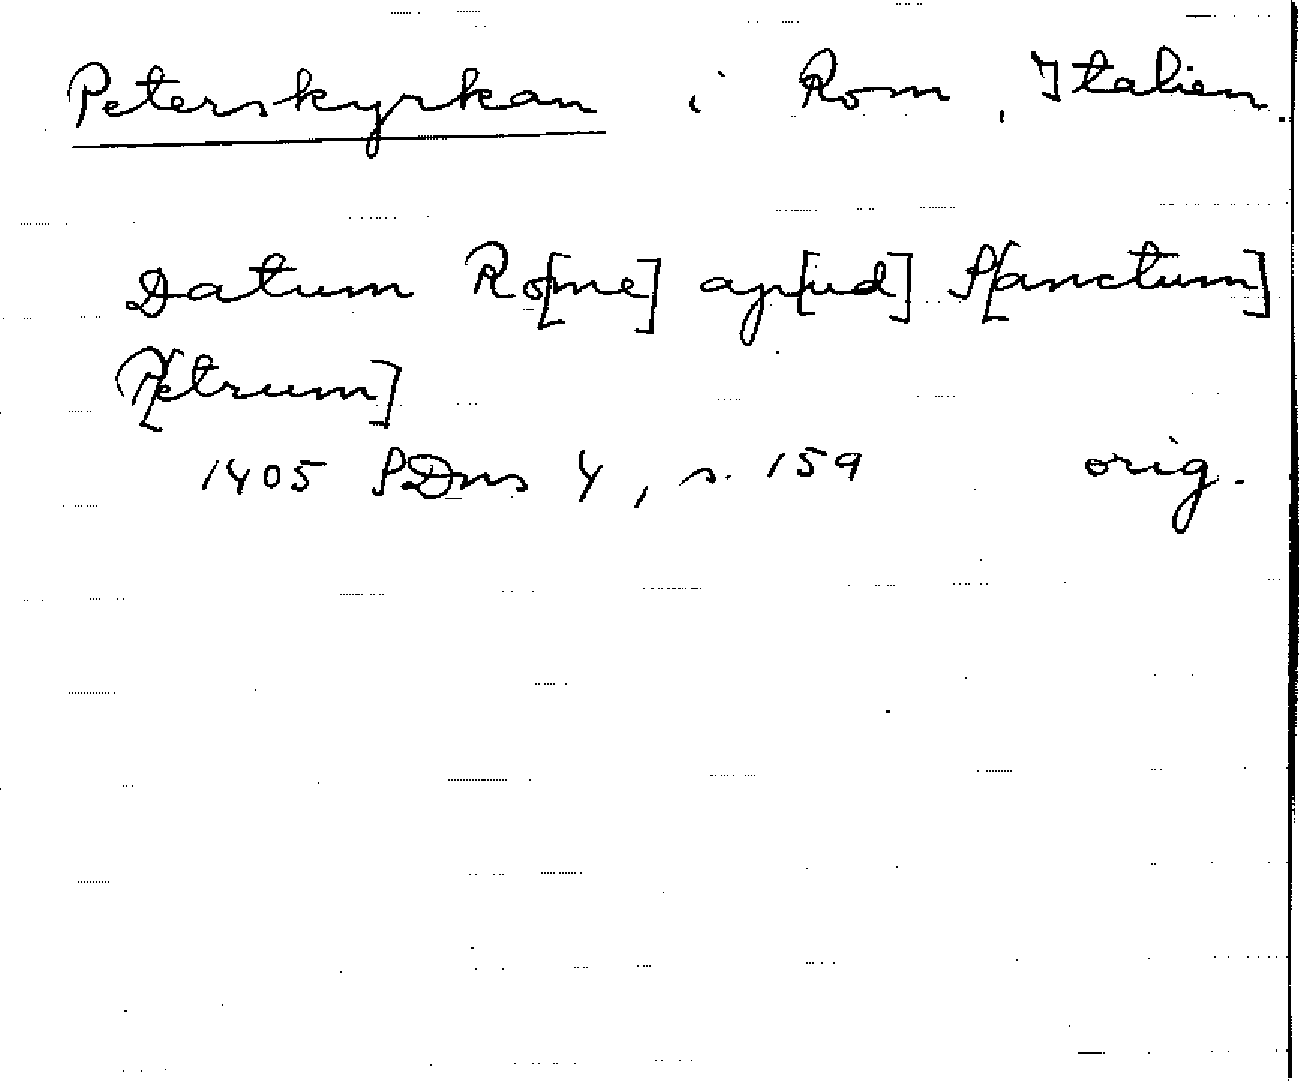 Peterskyrkan i Rom, Italien.
Datum Ro[me] ap[ud] S[anctum]
P[etrum]
1405 SDns 4, s. 159 orig.